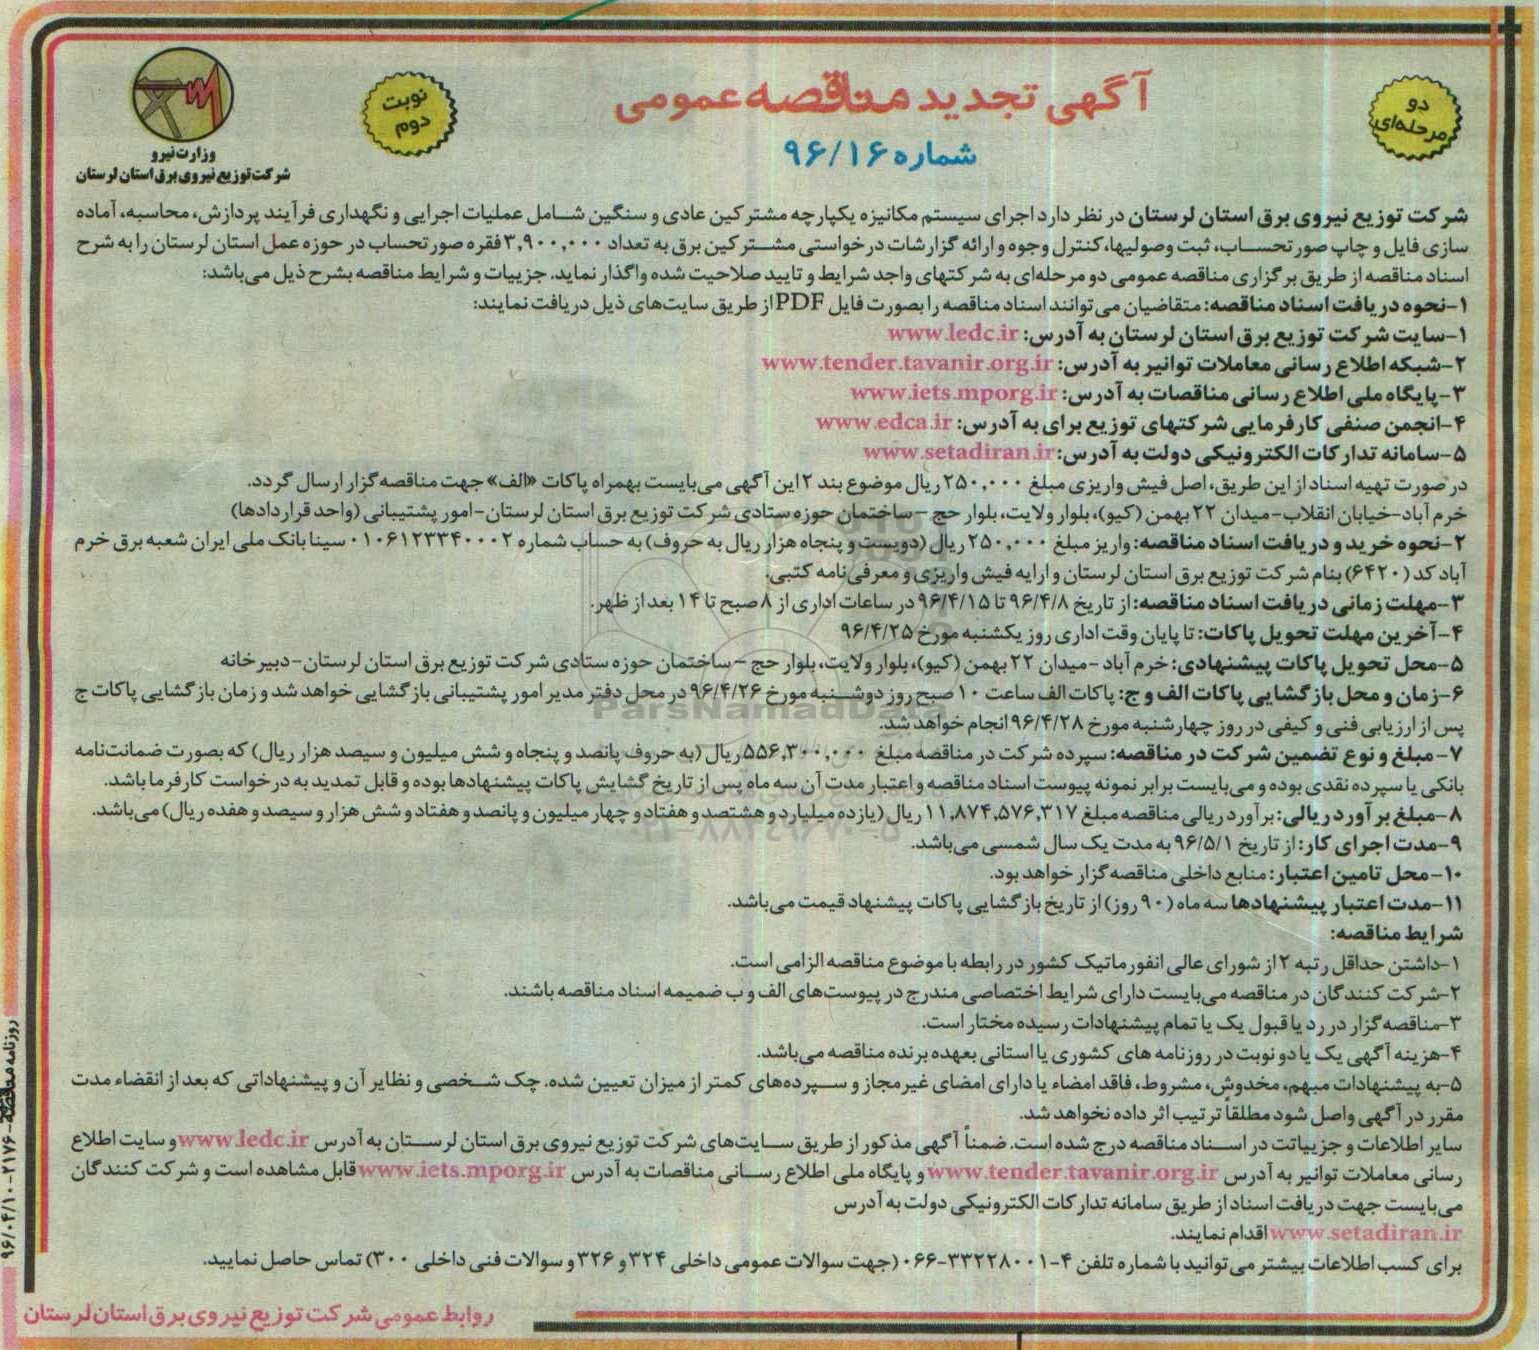 آگهی تجدید مناقصه عمومی
شماره ۹۶/۱۶
دو
مرحله‌ای
نوبت
دوم
وزارت نیرو
شرکت توزیع نیروی برق استان لرستان
شرکت توزیع نیروی برق استان لرستان در نظر دارد اجرای سیستم مکانیزه یکپارچه مشترکین عادی و سنگین شامل عملیات اجرایی و نگهداری فرآیند پردازش، محاسبه، آماده
سازی فایل و چاپ صورتحساب، ثبت وصولیها، کنترل وجوه و ارائه گزارشات درخواستی مشترکین برق به تعداد ۳,۹۰۰,۰۰۰ فقره صورتحساب در حوزه عمل استان لرستان را به شرح
اسناد مناقصه از طریق برگزاری مناقصه عمومی دو مرحله‌ای به شرکتهای واجد شرایط و تایید صلاحیت شده واگذار نماید. جزییات و شرایط مناقصه بشرح ذیل می‌باشد:
۱-نحوه دریافت اسناد مناقصه: متقاضیان می‌توانند اسناد مناقصه را بصورت فایل PDF از طریق سایت‌های ذیل دریافت نمایند:
۱-سایت شرکت توزیع برق استان لرستان به آدرس: www.ledc.ir
۲-شبکه اطلاع رسانی معاملات توانیر به آدرس: www.tender.tavanir.org.ir
۳-پایگاه ملی اطلاع رسانی مناقصات به آدرس: www.iets.mporg.ir
۴-انجمن صنفی کارفرمایی شرکتهای توزیع برای به آدرس: www.edca.ir
۵-سامانه تدارکات الکترونیکی دولت به آدرس: www.setadiran.ir
در صورت تهیه اسناد از این طریق، اصل فیش واریزی مبلغ ۲۵۰,۰۰۰ ریال موضوع بند ۲ این آگهی می‌بایست بهمراه پاکات «الف» جهت مناقصه‌گزار ارسال گردد.
خرم آباد-خیابان انقلاب-میدان ۲۲ بهمن (کیو)، بلوار ولایت، بلوار حج - ساختمان حوزه ستادی شرکت توزیع برق استان لرستان-امور پشتیبانی (واحد قراردادها)
۲-نحوه خرید و دریافت اسناد مناقصه: واریز مبلغ ۲۵۰,۰۰۰ ریال (دویست و پنجاه هزار ریال به حروف) به حساب شماره ۰۱۰۶۱۲۳۳۴۰۰۰۲ سیبا بانک ملی ایران شعبه برق خرم
آباد کد (۶۴۲۰) بنام شرکت توزیع برق استان لرستان و ارایه فیش واریزی و معرفی‌نامه کتبی.
۳-مهلت زمانی دریافت اسناد مناقصه: از تاریخ ۹۶/۴/۸ تا ۹۶/۴/۱۵ در ساعات اداری از ۸ صبح تا ۱۴ بعد از ظهر.
۴-آخرین مهلت تحویل پاکات: تا پایان وقت اداری روز یکشنبه مورخ ۹۶/۴/۲۵
۵-محل تحویل پاکات پیشنهادی: خرم آباد -میدان ۲۲ بهمن (کیو)، بلوار ولایت، بلوار حج - ساختمان حوزه ستادی شرکت توزیع برق استان لرستان-دبیرخانه
۶-زمان و محل بازگشایی پاکات الف و ج: پاکات الف ساعت ۱۰ صبح روز دوشنبه مورخ ۹۶/۴/۲۶ در محل دفتر مدیر امور پشتیبانی بازگشایی خواهد شد و زمان بازگشایی پاکات ج
پس از ارزیابی فنی و کیفی در روز چهارشنبه مورخ ۹۶/۴/۲۸ انجام خواهد شد.
۷- مبلغ و نوع تضمین شرکت در مناقصه: سپرده شرکت در مناقصه مبلغ ۵۵۶,۳۰۰,۰۰۰ ریال (به حروف پانصد و پنجاه و شش میلیون و سیصد هزار ریال) که بصورت ضمانت‌نامه
بانکی یا سپرده نقدی بوده و می‌بایست برابر نمونه پیوست اسناد مناقصه و اعتبار مدت آن سه ماه پس از تاریخ گشایش پاکات پیشنهادها بوده و قابل تمدید به درخواست کارفرما باشد.
۸-مبلغ برآورد ریالی: برآورد ریالی مناقصه مبلغ ۱۱,۸۷۴,۵۷۶,۳۱۷ ریال (یازده میلیارد و هشتصد و هفتاد و چهار میلیون و پانصد و هفتاد و شش هزار و سیصد و هفده ریال) می‌باشد.
۹-مدت اجرای کار: از تاریخ ۹۶/۵/۱ به مدت یک سال شمسی می‌باشد.
۱۰-محل تامین اعتبار: منابع داخلی مناقصه‌گزار خواهد بود.
۱۱-مدت اعتبار پیشنهادها سه ماه (۹۰ روز) از تاریخ بازگشایی پاکات پیشنهاد قیمت می‌باشد.
شرایط مناقصه:
۱-داشتن حداقل رتبه ۲ از شورای عالی انفورماتیک کشور در رابطه با موضوع مناقصه الزامی است.
۲-شرکت کنندگان در مناقصه می‌بایست دارای شرایط اختصاصی مندرج در پیوست‌های الف و ب ضمیمه اسناد مناقصه باشند.
۳-مناقصه‌گزار در رد یا قبول یک یا تمام پیشنهادات رسیده مختار است.
۴-هزینه آگهی یک یا دو نوبت در روزنامه های کشوری یا استانی بعهده برنده مناقصه می‌باشد.
۵-به پیشنهادات مبهم، مخدوش، مشروط، فاقد امضاء یا دارای امضای غیرمجاز و سپرده‌های کمتر از میزان تعیین شده، چک شخصی و نظایر آن و پیشنهاداتی که بعد از انقضاء مدت
مقرر در آگهی واصل شود مطلقاً ترتیب اثر داده نخواهد شد.
سایر اطلاعات و جزییاتت در اسناد مناقصه درج شده است. ضمناً آگهی مذکور از طریق سایت‌های شرکت توزیع نیروی برق استان لرستان به آدرس www.ledc.ir و سایت اطلاع
رسانی معاملات توانیر به آدرس www.tender.tavanir.org.ir و پایگاه ملی اطلاع رسانی مناقصات به آدرس www.iets.mporg.ir قابل مشاهده است و شرکت کنندگان
می‌بایست جهت دریافت اسناد از طریق سامانه تدارکات الکترونیکی دولت به آدرس
www.setadiran.ir اقدام نمایند.
برای کسب اطلاعات بیشتر می‌توانید با شماره تلفن ۴-۰۶۶-۳۳۲۲۸۰۰۱ (جهت سوالات عمومی داخلی ۳۲۴ و ۳۲۶ و سوالات فنی داخلی ۳۰۰) تماس حاصل نمایید.
روابط عمومی شرکت توزیع نیروی برق استان لرستان
روزنامه مناقصه-۲۱۷۶-۹۶/۰۴/۱۰
ParsNamadData